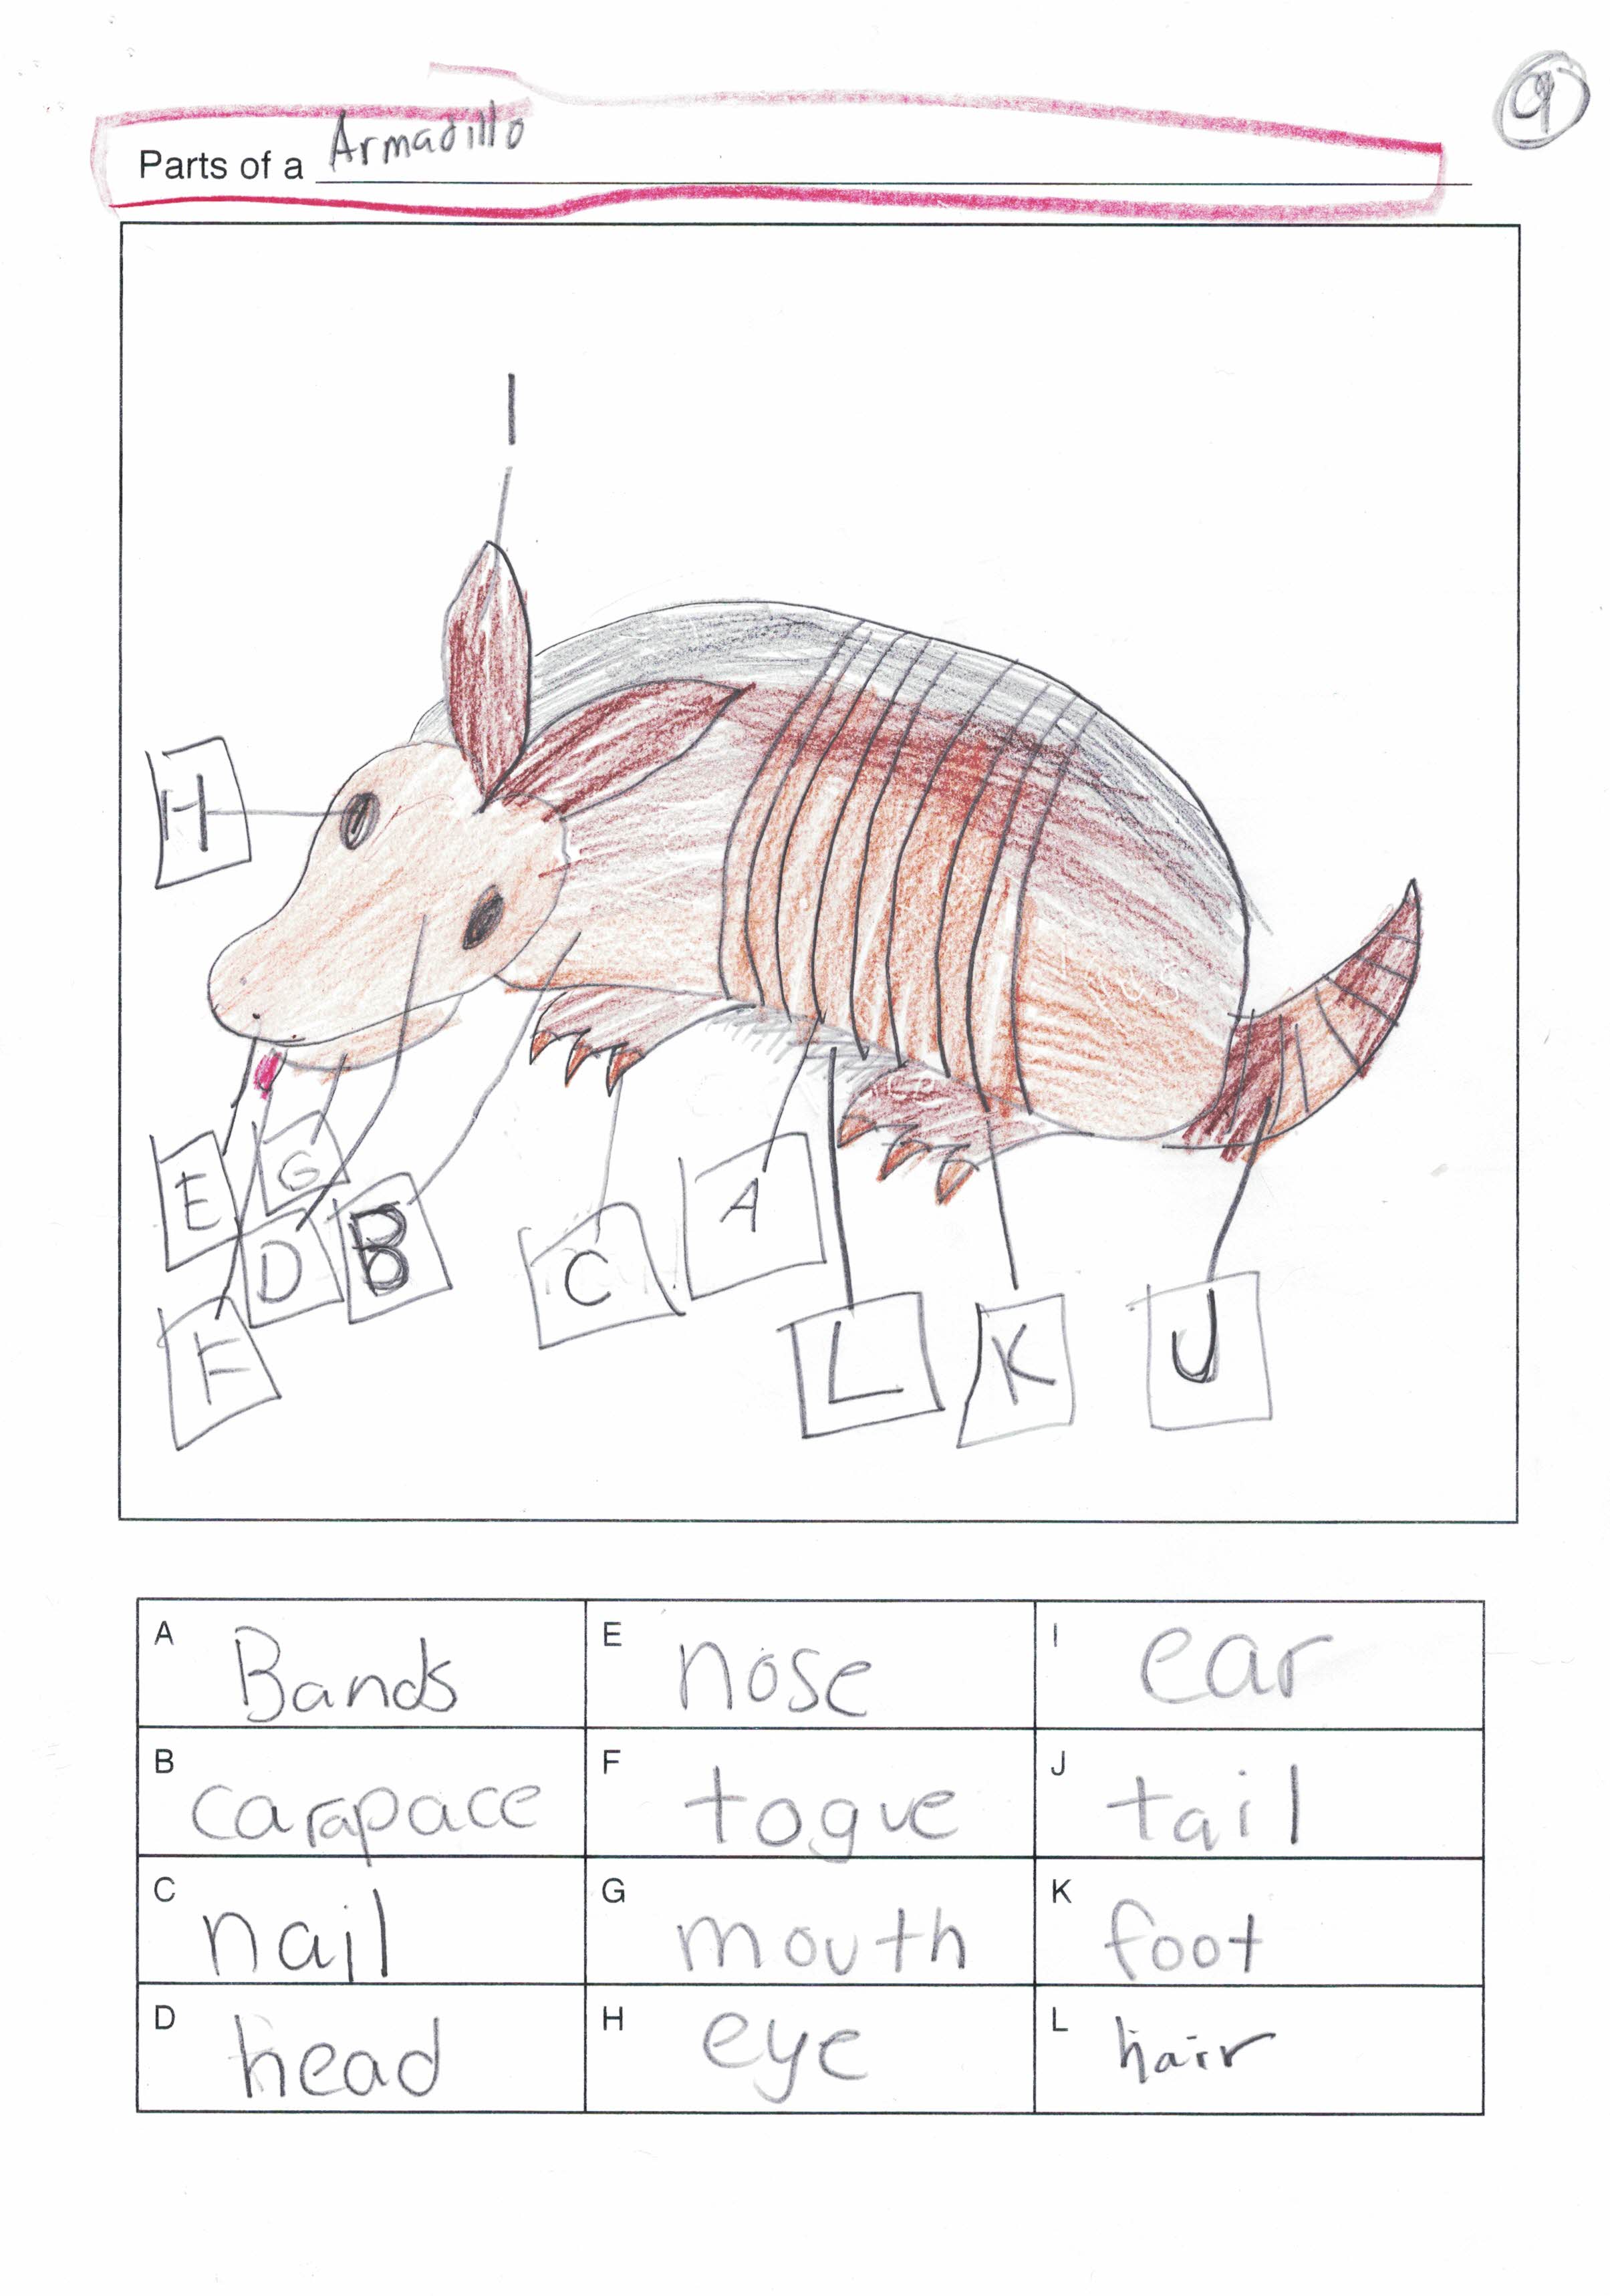 9
Parts of a Armadillo
I
H
E G
D B C A
F L K J
A Bands E nose I ear
B carapace F togue J tail
C nail G mouth K foot
D head H eye L hair